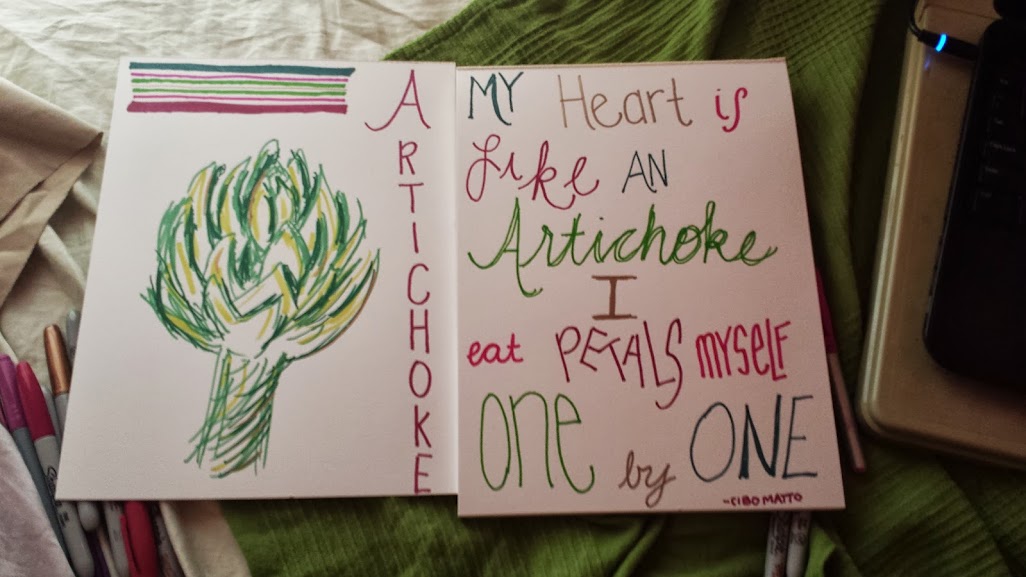 ARTICHOKE
MY Heart is
Like AN
Artichoke
I
eat PETALS MYSELF
One by ONE
-CIBO MATTO